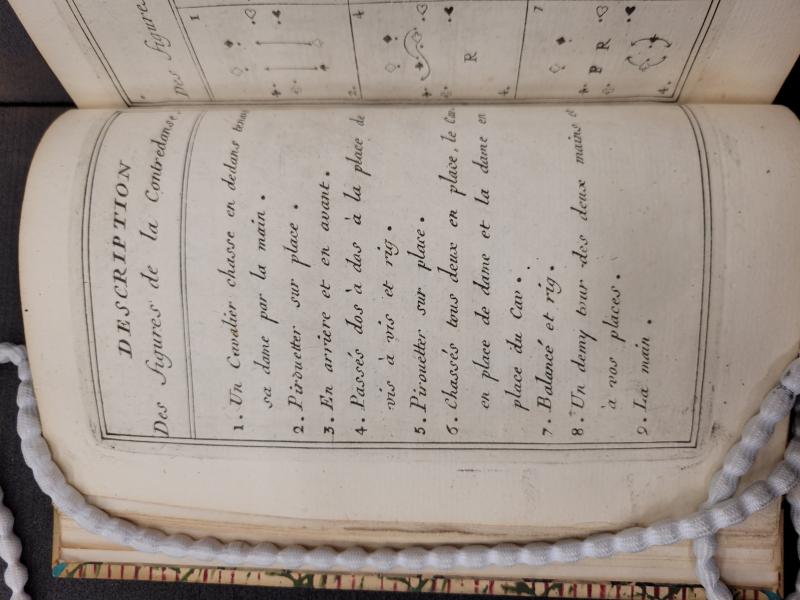 DESCRIPTION
Des figures de la Contredanse.
1. Un Cavalier chasse en dedans
sa dame par la main.
2. Pirouetter sur place.
3. En arriere et en avant.
4. Passés dos à dos à la place de
vis à vis et rig.
5. Pirouetter sur place.
6. Chassés tous deux en place, le Cav
en place de dame et la dame en
place du Cav.
7. Balancé et rig.
8. Un demy tour des deux mains
à vos places.
9. La main.
Des figure
1
2.
4
R
4.
7
P R
4.